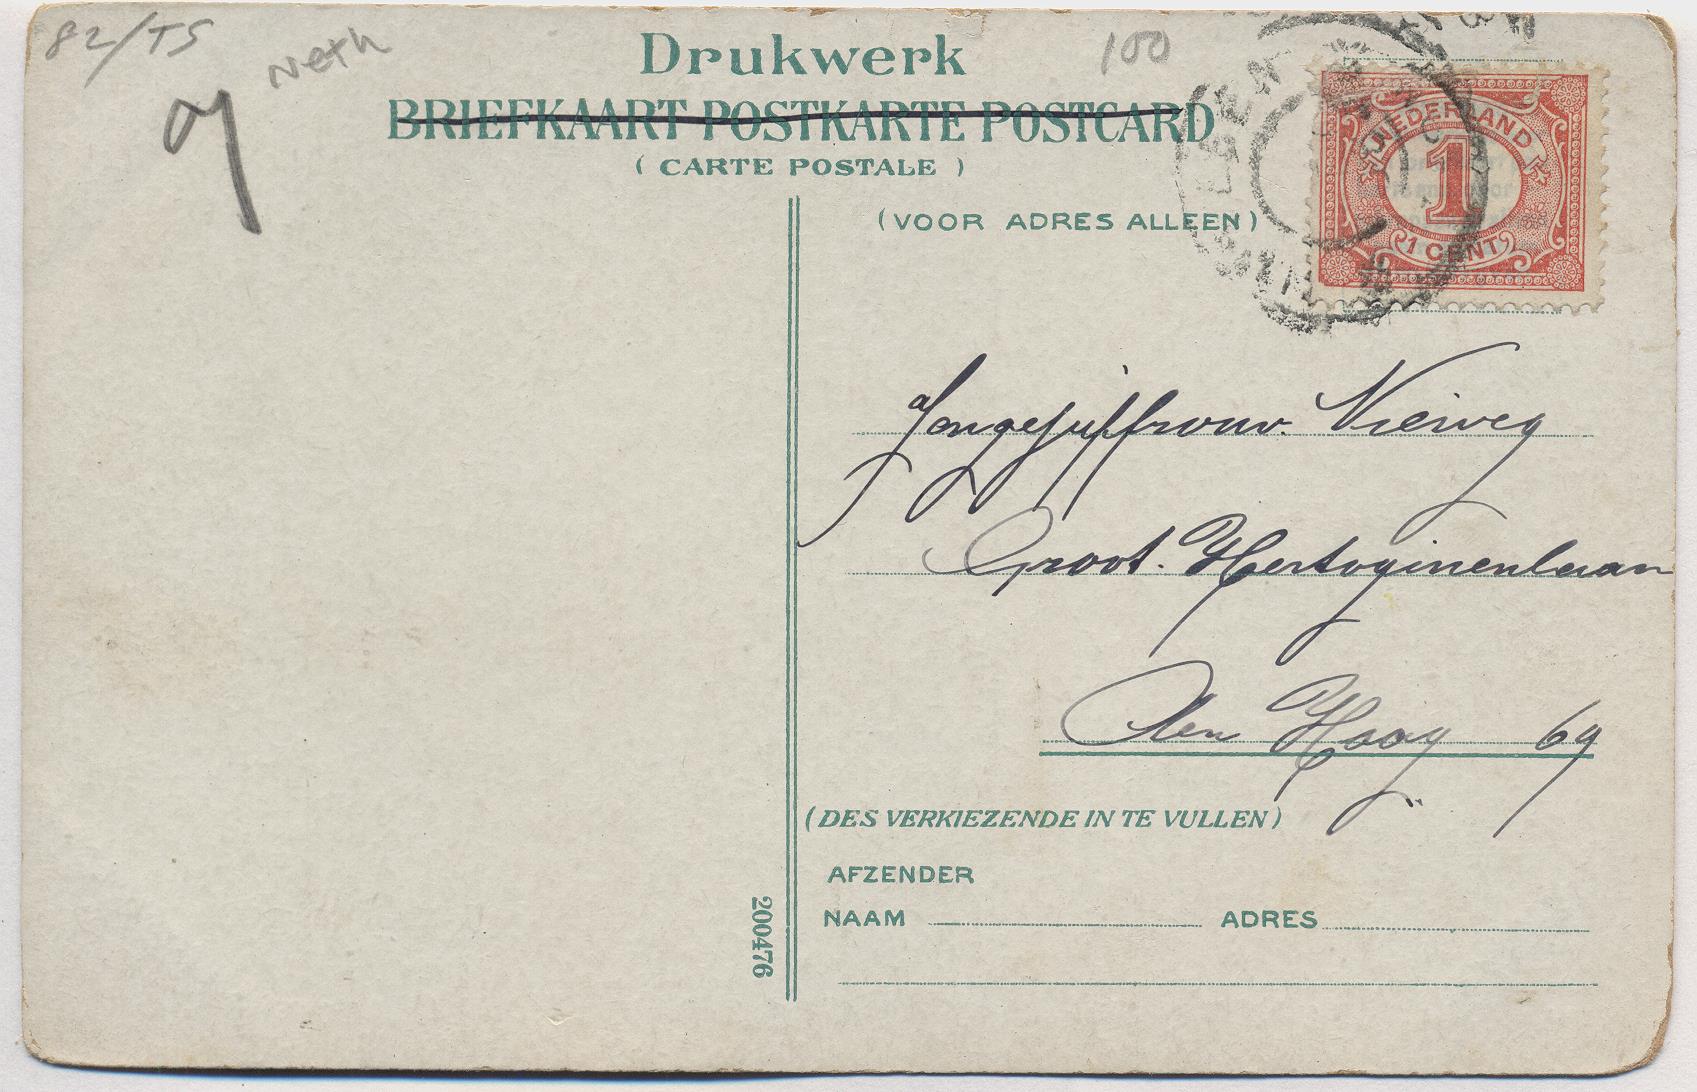 82/TS
Neth
100
Drukwerk
BRIEFKAART POSTKARTE POSTCARD
( CARTE POSTALE )
(VOOR ADRES ALLEEN)
NEDERLAND
1
1 CENT
Jongejuffrouw. Vieweg
Groot. Hertoginenlaan
Den Haag 69
(DES VERKIEZENDE IN TE VULLEN)
AFZENDER
NAAM ADRES
200476